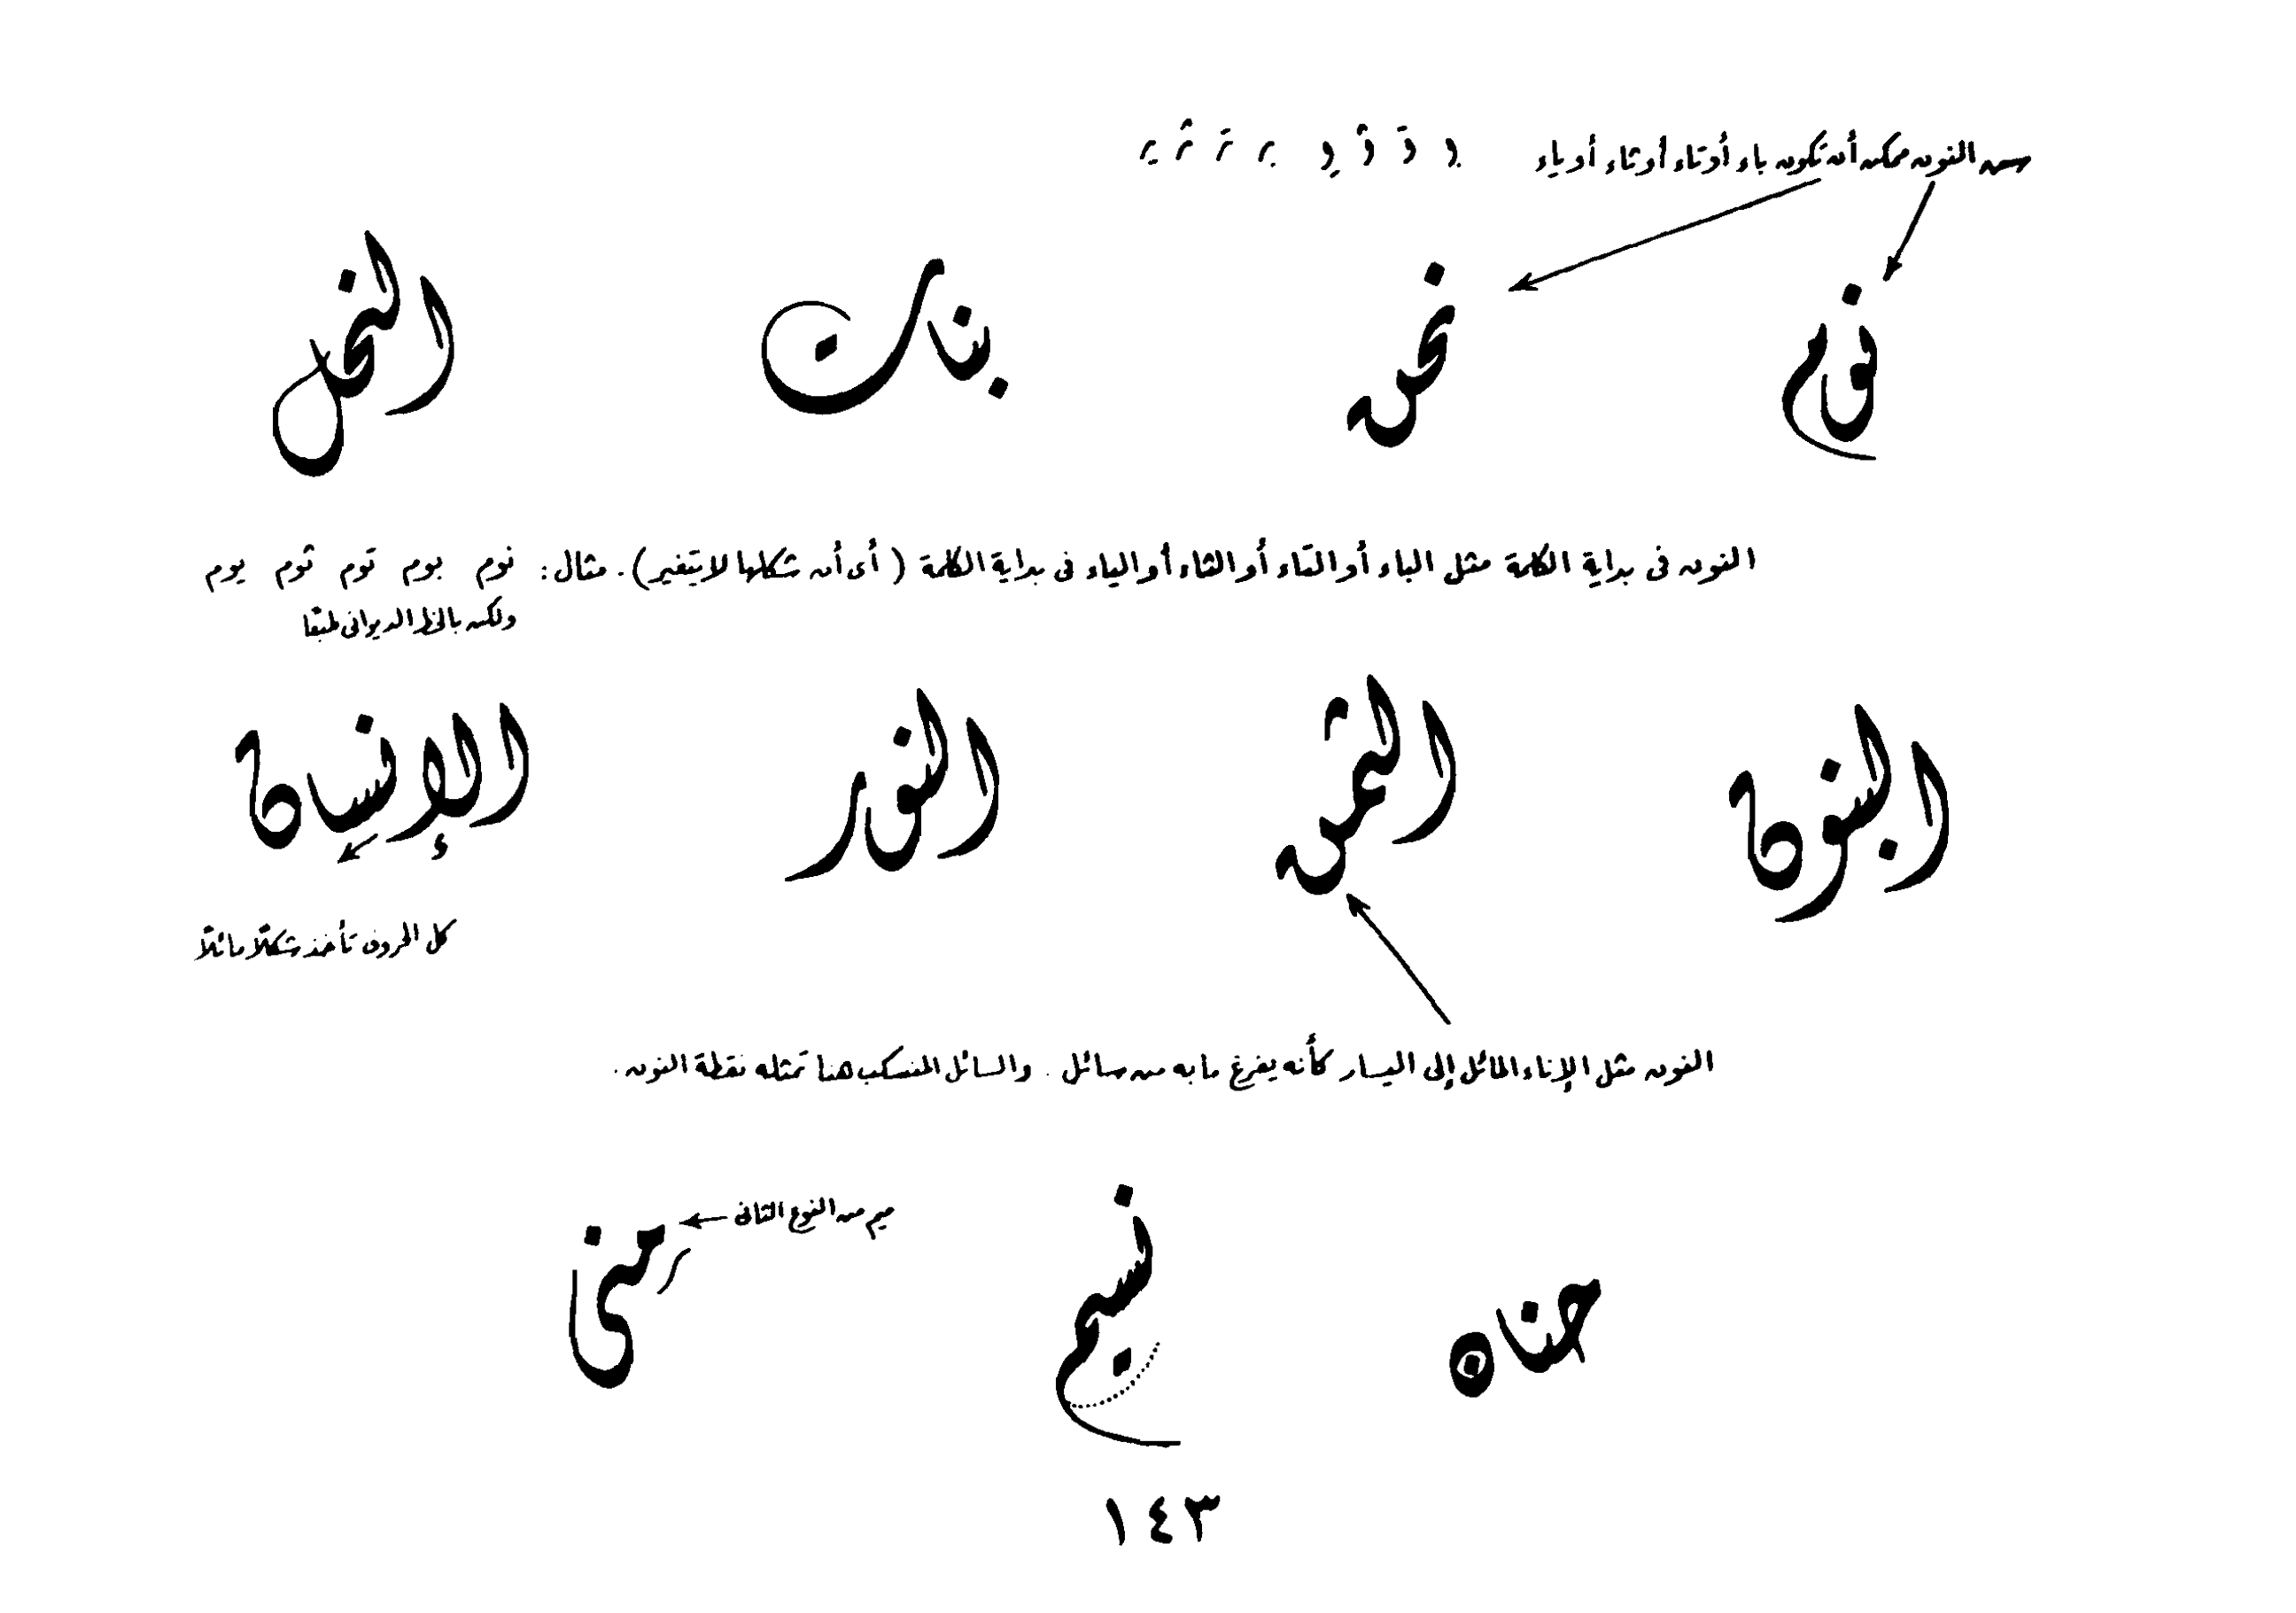 سن النون ممكن أن تكون باء أو تاء أو ثاء أو ياء
نوم نحن بنات النحل
النون فى بداية الكلمة مثل الباء أو التاء أو الثاء أو الياء فى بداية الكلمة (أى أن شكلها لا يتغير). مثال: نوم بوم توم ثوم يوم
ولكن بالخط الديوانى طبعًا
البنون الثمن النور الإنسان
كل الحروف تأخذ شكلًا مائلًا
النون مثل الإناء المائل إلى اليسار كأنه يفرغ ما به من سائل. والسائل المنسكب هنا تمثله نقطة النون.
ميم من النوع الثانى
حنان نسيم منى
١٤٣